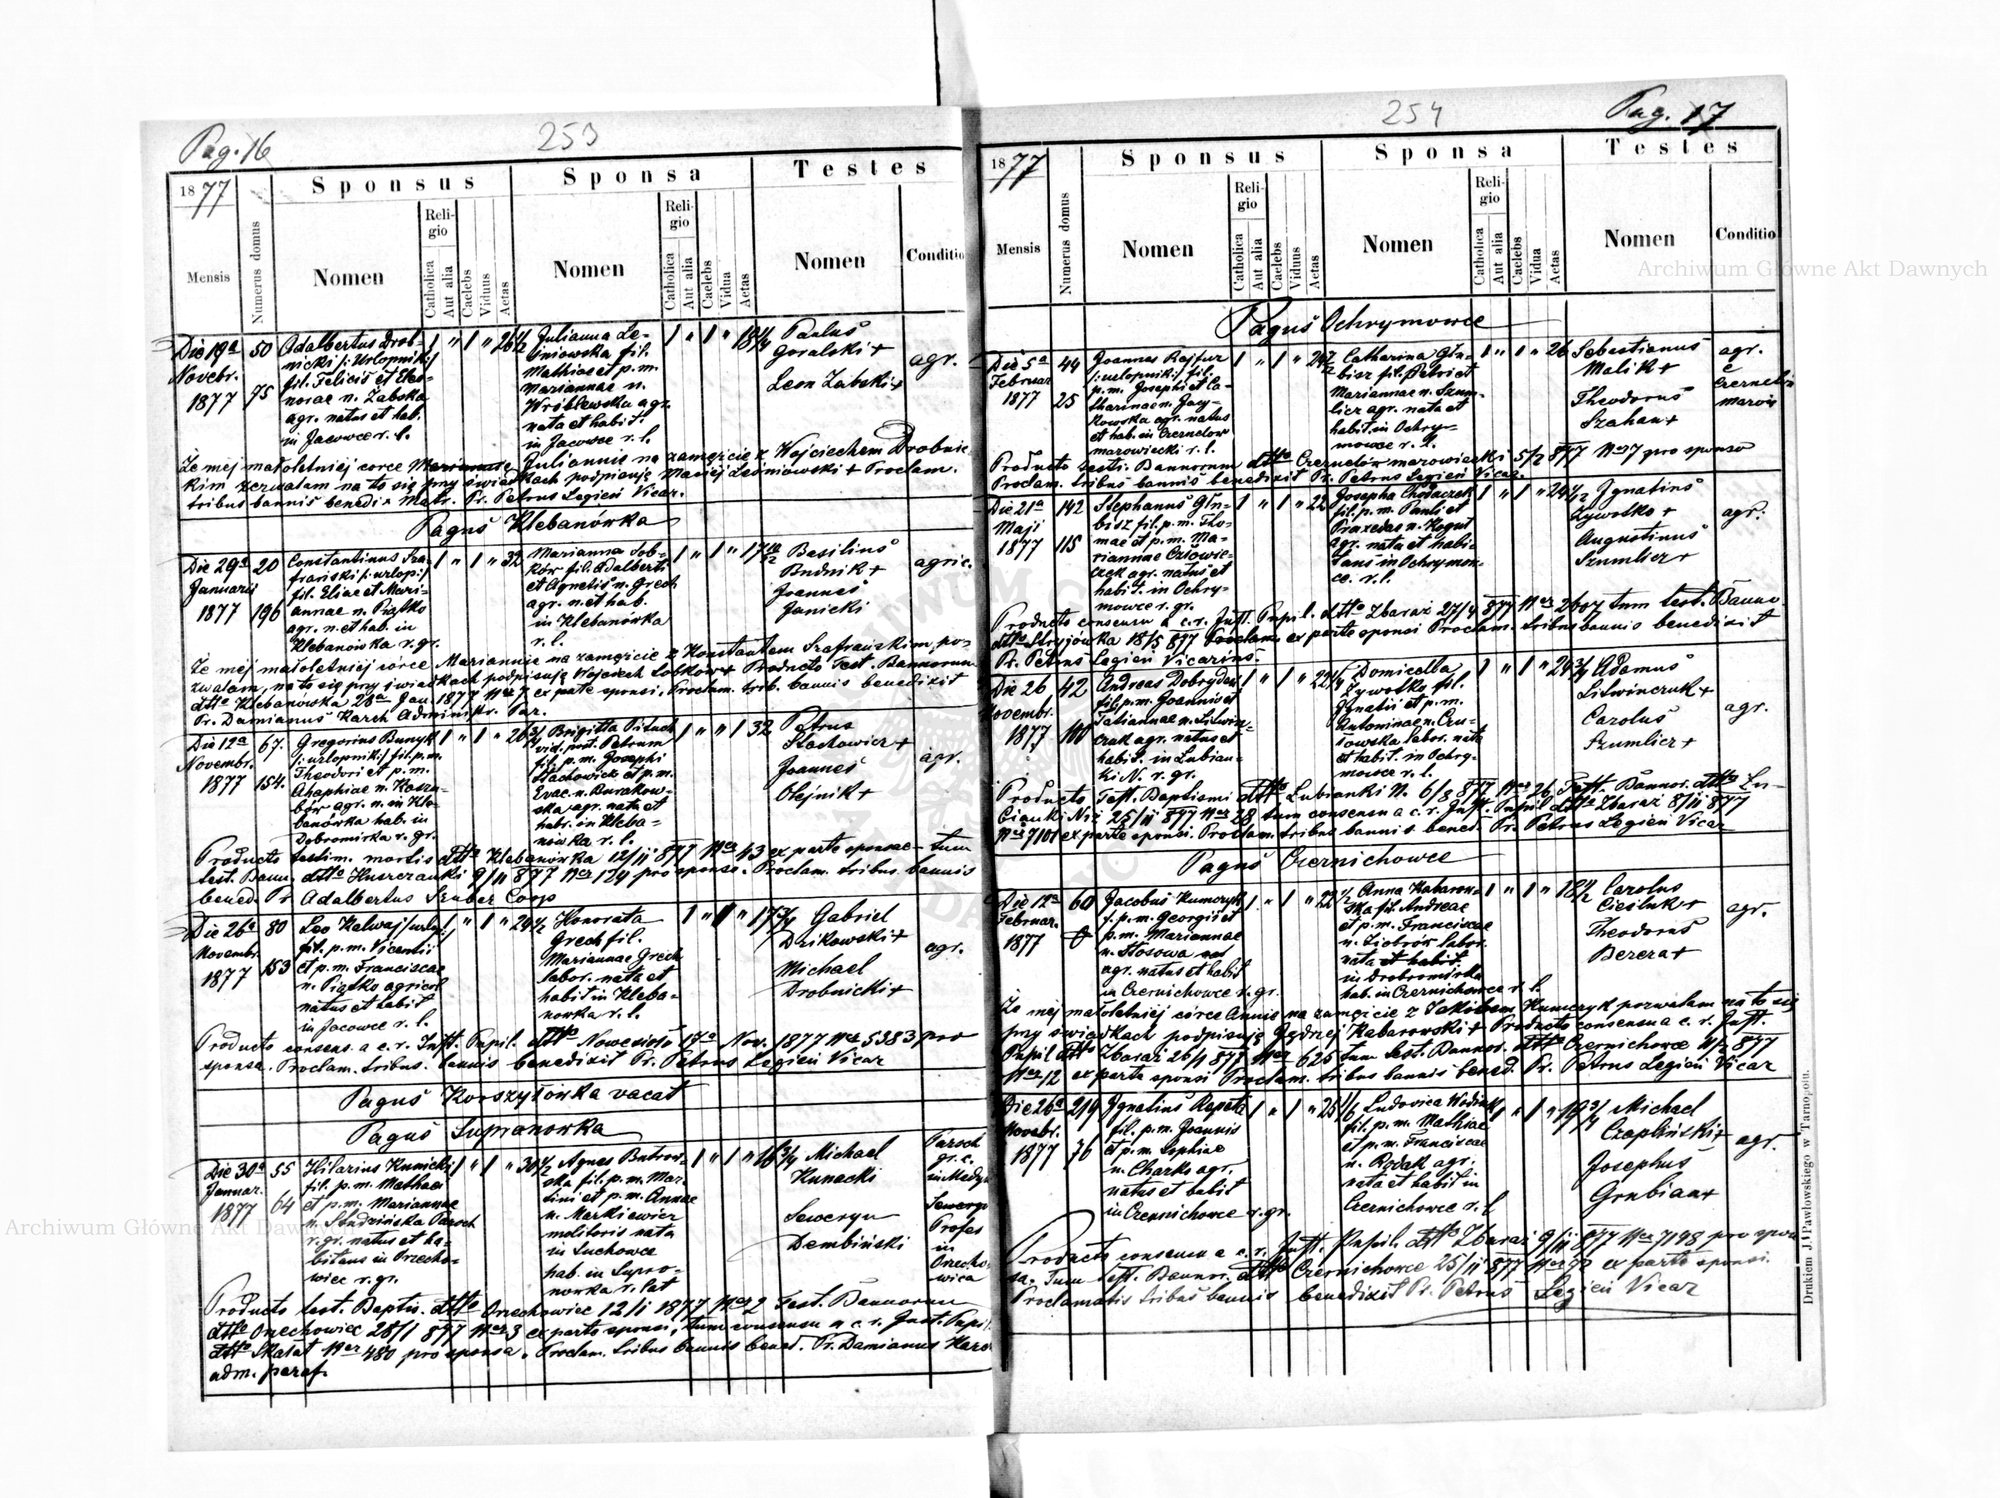 Pag. 16
253
1877
Sponsus
Sponsa
Testes
Mensis
Numerus domus
Nomen
Religio
Catholica
Aut alia
Caelebs
Viduus
Aetas
Nomen
Religio
Catholica
Aut alia
Caelebs
Vidua
Aetas
Nomen
Conditio
Die 19a
Novebr.
1877
50
75
Adalbertus Drob-
nicki /: Urlopnik :/
fil. Felicis et Eleo-
norae n. Zabska
agr. natus et hab.
in Jacowce r. l.
1 " 1 " 26 1/2
Julianna Le-
śniowska fil.
Mathiae et p. m.
Mariannae n.
Wróblewska agr.
nata et habit.
in Jacowce r. l.
1 " 1 " 18 1/4
Paulus
Goralski +
Leon Zabski +
agr.
Że mej małoletniej corce Mariannie Juliannie na zamęście z Wojciechem Drobnic-
kim zezwalam na to się przy świadkach podpisuję Maciej Leśniowski + Proclam.
tribus bannis benedix Matr. Pr. Petrus Legień Vicar.
Pagus Klebanówka
Die 29a
Januarii
1877
20
196
Constantinus Sza-
frański /: urlop :/
fil. Eliae et Mari-
annae n. Piątko
agr. n. et hab. in
Klebanówka r. gr.
1 " 1 " 32
Marianna Sob-
ków fil. Adalberti
et Agnetis n. Grech
agr. n. et hab.
in Klebanówka
r. l.
1 " 1 " 17 10/12
Basilius
Budnik +
Joannes
Janicki
agric.
Że mej małoletniej córce Mariannie na zamęście z Konstantem Szafrańskim po-
zwalam, na to się przy świadkach podpisuję Wojciech Sobków + Producto Test. Bannorum
dtto Klebanowska 28a Jan. 1877 Ner 7 ex parte sponsi. Proclam. trib. bannis benedixit
Pr. Damianus Karch Administr. Par.
Die 12a
Novembr.
1877
67.
154.
Gregorius Bunyk
/: urlopnik :/ fil. p. m.
Theodori et p. m.
Ahaphiae n. Koszu-
bór agr. n. in Kle-
banówka hab. in
Dobromirka r. gr.
1 " 1 " 26 3/4
Brigitta Pituch
vid. post. Petrum
fil. p. m. Josephi
Stachowicz et p. m.
Evae n. Burakow-
ska agr. nata et
habi. in Kleba-
nówka r. l.
1 " " 1 32
Petrus
Stachowicz +
Joannes
Olejnik +
agr.
Producto testim. mortis dtto Klebanówka 12/11 877 Ner 43 ex parte sponsae - tum
test. Bann. dtto Hnszczanki 9/11 877 Ner 124 pro sponso. Proclam. tribus bannis
bened. Pr. Adalbertus Szuber Coop
Die 26a
Novembr.
1877
80
153
Leo Kalwaj /: urlop :/
fil. p. m. Vicentii
et p. m. Franciscae
n. Piątko agricol
natus et habit
in Jacowce r. l.
1 " 1 " 24 1/2
Honorata
Grech fil.
Mariannae Grech
labor. nata et
habit in Kleba-
nowka r. l.
1 " 1 " 17 3/4
Gabriel
Dzikowski +
Michael
Drobnicki +
agr.
Producto consens. a c. r. Inst. Pupil. dtto Nowesioło 17a Nov. 1877 Ner 5383 pro
sponsa. Proclam. tribus. bannis benedixit Pr. Petrus Legień Vicar
Pagus Korszyłowka vacat
Pagus Supranowka
Die 30a
Januar.
1877
55
64
Hilarius Kunicki
fil. p. m. Mathaei
et p. m. Mariannae
n. Paroch
r. gr. natus et ha-
bitans in Orzecho-
wiec r. gr.
1 " 1 " 30 1/2
Agnes Butrow-
ska fil. p. m. Mar-
tini et p. m. Annae
n. Markiewicz
molitoris nata
in Suchowce
hab. in Supro-
nowka r. lat
1 " 1 " 16 3/4
Michael
Kunacki
Seweryn
Dembiński
Paroch
gr. c.
in Medyn
Profes
in
Orzecho-
wica
Producto test. Baptis. dtto Orzechowiec 12/1 1877 Ner 2 Test. Bannorum
dtto Orzechowiec 28/1 877 Ner 3 ex parte sponsi, tum consensu a c. r. Inst. Pupil.
dtto Skałat Ner 480 pro sponsa. Proclam. tribus bannis bened. Pr. Damianus Karch
adm. paraf.
254
Pag. 17
1877
Sponsus
Sponsa
Testes
Mensis
Numerus domus
Nomen
Religio
Catholica
Aut alia
Caelebs
Viduus
Aetas
Nomen
Religio
Catholica
Aut alia
Caelebs
Vidua
Aetas
Nomen
Conditio
Pagus Ochrymowce
Die 5a
Februar
1877
44
25
Joannes Rajfur
/: urlopnik :/ fil.
p. m. Josephi et Ca-
tharinae n. Jacy-
kowska agr. natus
et hab. in Czernelow
marowiecki r. l.
1 " 1 " 24 1/2
Catharina Głu-
bisz fil. Petri et
Mariannae n. Szum-
licz agr. nata et
habit. in Ochry-
mowce r. l.
1 " 1 " 26
Sebestianus
Malik +
Theodorus
Szahan +
agr.
Producto testi. Bannorum dtto Czernelów marowiecki 5/2 877 Ner 7 pro sponso
Proclam. tribus bannis benedixit Pr. Petrus Legień Vicar.
Die 21a
Maji
1877
142
115
Stephanus Głu-
bisz fil. p. m. Tho-
mae et p. m. Ma-
riannae Człowie-
czek agr. natus et
habit. in Ochry-
mowce r. gr.
1 " 1 " 22
Josepha Chodaczek
fil. p. m. Pauli et
Praxedas n. Kogut
agr. nata et habi-
tans in Ochrymow-
ce. r. l.
1 " 1 " 24 1/2
Ignatius
Żywotko +
Augustinus
Szumlicz +
agr.
Producto consensu a c. r. Inst. Pupil. dtto Zbaraż 27/4 877 Ner 2607 tum test. Banno.
dtto Stryjówka 18/5 877 Proclam ex parte sponsi Proclam. tribus bannis benedixit
Pr. Petrus Legień Vicarius.
Die 26
Novembr.
1877
42
Andreas Dobryden
fil. p. m. Joannis et
Tatiannae n. Litwin-
czuk agr. natus et
habit. in Lubian-
ki N. r. gr.
1 " 1 " 22 1/4
Domicella
Żywotko fil.
Ignatii et p. m.
Antoninae n. Czu-
łowska labor. nata
et habit. in Ochry-
mowce r. l.
1 " 1 " 24 3/4
Adamus
Litwinczuk +
Carolus
Szumlicz +
agr.
Producto Test. Baptismi dtto Lubianki N. 6/8 877 Ner 26, Test. Bannor. dtto Lu-
bianki Niż 25/11 877 Ner 28 tum consensu a c. r. Inst. Pupil dtto Zbaraż 8/11 877
Ner 7101 ex parte sponsi. Proclam. tribus bannis bened. Pr. Petrus Legień Vicar
Pagus Czernichowce
Die 12a
Februar.
1877
60
Jacobus Kumczyk
f. p. m. Georgii et
p. m. Mariannae
n. Stosowa
agr. natus et habit
in Czernichowce r. gr.
1 " 1 " 22 1/2
Anna Kabarow-
ska fil. Andreae
et p. m. Franciscae
n. Ziobrów labor.
nata et habit.
in Drobromirka
hab. in Czernichowce r. l.
1 " 1 " 18 1/2
Carolus
Cieśluk +
Theodorus
Bereza +
agr.
Że mej małoletniej córce Annie na zamęście z Jakóbem Kumczyk pozwalam na to się
przy świadkach podpisuję Jędrzej Kabarowski + Producto consensu a c. r. Inst.
Pupil dtto Zbaraż 26/1 877 Ner 625 tum test. Bannor. dtto Czernichowce 11/2 877
Ner 12 ex parte sponsi Proclam. tribus bannis bened. Pr. Petrus Legień Vicar
Die 26a
Novebr.
1877
219
76
Ignatius Repeta
fil. p. m. Joannis
et p. m. Sophiae
n. Charko agr.
natus et habit
in Czernichowce r. gr.
1 " 1 " 25 1/6
Ludovica Wodiuk
fil. p. m. Mathiae
et p. m. Franciscae
n. Rodak agr.
nata et habit in
Czernichowce r. l
1 " 1 " 19 3/4
Michael
Czapliński +
Josephus
Grubian +
agr.
Producto consensu a c. r. Inst. Pupil. dtto Zbaraż 9/11 877 Ner 7198 pro spon-
sa. Tum Test. Bannor. dtto Czernichowce 25/11 877 Ner 90 ex parte sponsi.
Proclamatis tribus bannis benedixit Pr. Petrus Legień Vicar
Drukiem J. Pawłowskiego w Tarnopolu.
Archiwum Główne Akt Dawnych
Archiwum Główne Akt Dawnych